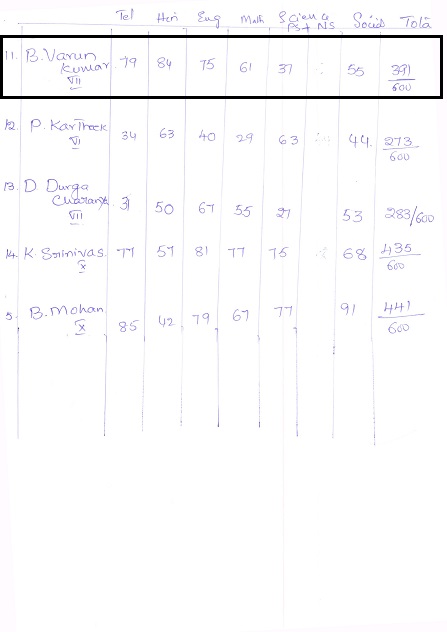 Tel Hin Eng Math Science Social Total
PS + NS
11. B. Varun Kumar VII 79 84 75 61 37 55 391/600
12. P. Kartheek VI 34 63 40 29 63 44 273/600
13. D Durga VII 31 50 67 55 27 53 283/600
14. K. Srinivas X 77 57 81 77 75 68 435/600
5. B. Mohan X 85 42 79 67 77 91 441/600